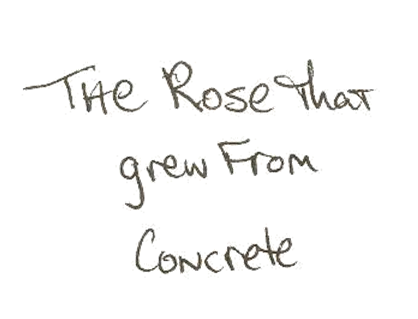 THe Rose That
grew From
Concrete